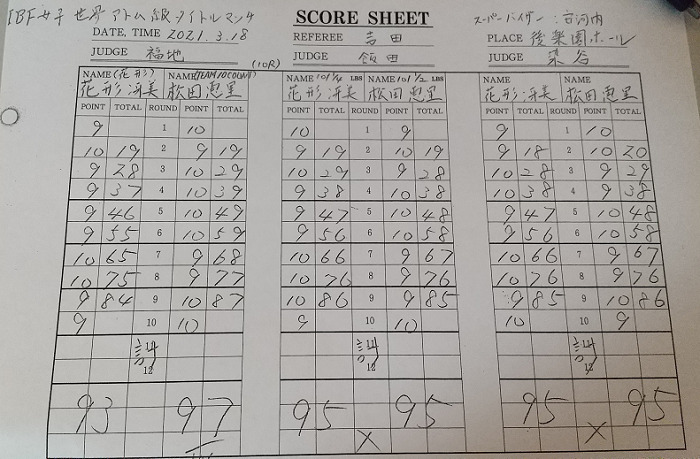 IBF女子 世界アトム級タイトルマッチ
SCORE SHEET
スーパーバイザー：古河内
DATE, TIME 2021.3.18
REFEREE 吉田
PLACE 後楽園ホール
JUDGE 福地 (10R)
JUDGE 飯田
JUDGE 染谷
NAME (花形) NAME (TEAM 10COUNT) NAME 101 1/4 LBS NAME 101 1/2 LBS NAME NAME
花形 冴美 松田 恵里 花形 冴美 松田 恵里 花形 冴美 松田 恵里
POINT TOTAL ROUND POINT TOTAL POINT TOTAL ROUND POINT TOTAL POINT TOTAL ROUND POINT TOTAL
9 1 10 10 1 9 9 1 10
10 19 2 9 19 9 19 2 10 19 9 18 2 10 20
9 28 3 10 29 10 29 3 9 28 10 28 3 9 29
9 37 4 10 39 9 38 4 10 38 10 38 4 9 38
9 46 5 10 49 9 47 5 10 48 9 47 5 10 48
9 55 6 10 59 9 56 6 10 58 9 56 6 10 58
10 65 7 9 68 10 66 7 9 67 10 66 7 9 67
10 75 8 9 77 10 76 8 9 76 10 76 8 9 76
9 84 9 10 87 10 86 9 9 85 9 85 9 10 86
9 10 10 9 10 10 10 10 9
12 12 12
93 97 95 95 95 95
X X